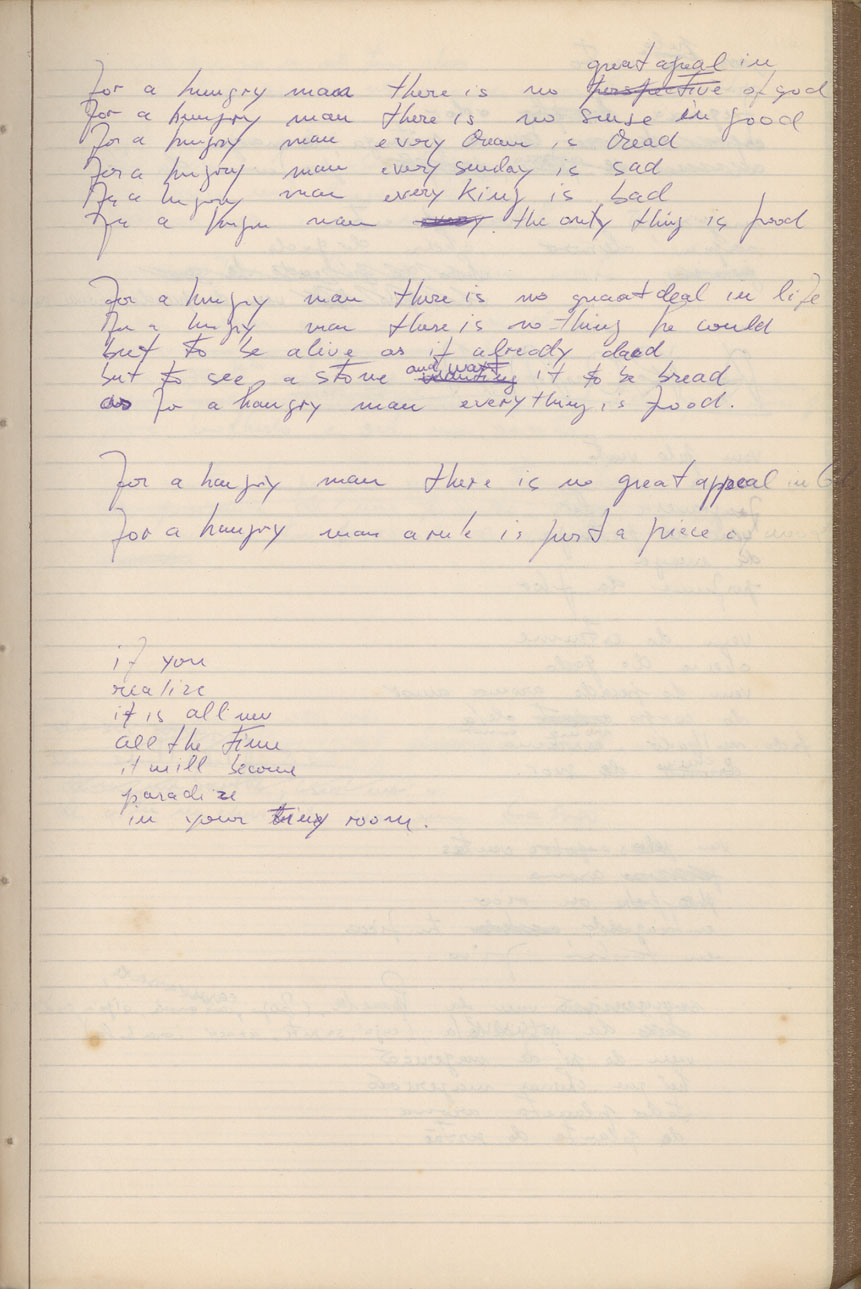 great apeal in
For a hungry man there is no perspective of god
For a hungry man there is no sense in good
For a hungry man every dream is dread
For a hungry man every sunday is sad
For a hungry man every king is bad
For a hungry man every the only thing is food
For a hungry man there is no great deal in life
For a hungry man there is nothing he could
but to be alive as if already dead
and want
but to see a stone wanting it to be bread
as for a hungry man everything is food.
For a hungry man there is no great appeal in
For a hungry man a rule is just a piece of
if you
realize
it is all now
all the time
it will become
paradize
in your tiny room.